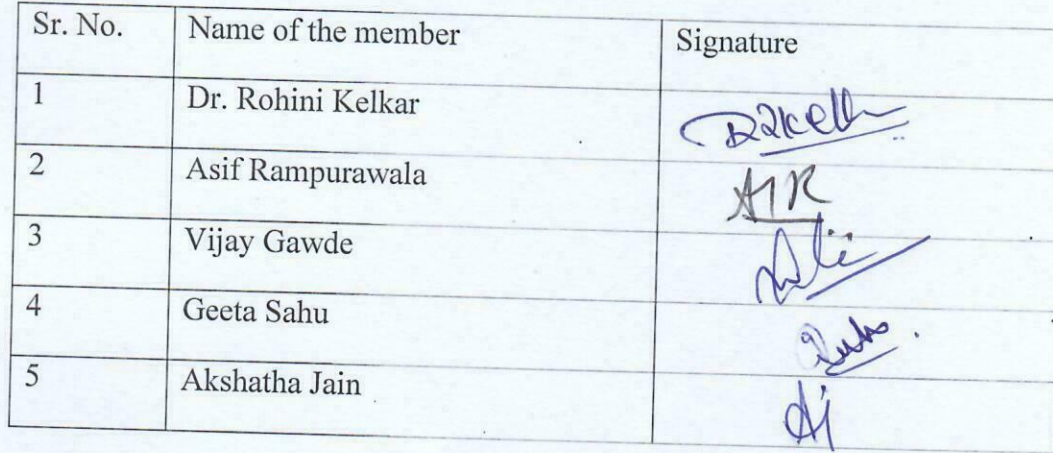 Sr. No. Name of the member Signature
1 Dr. Rohini Kelkar
2 Asif Rampurawala AIR
3 Vijay Gawde
4 Geeta Sahu
5 Akshatha Jain AJ